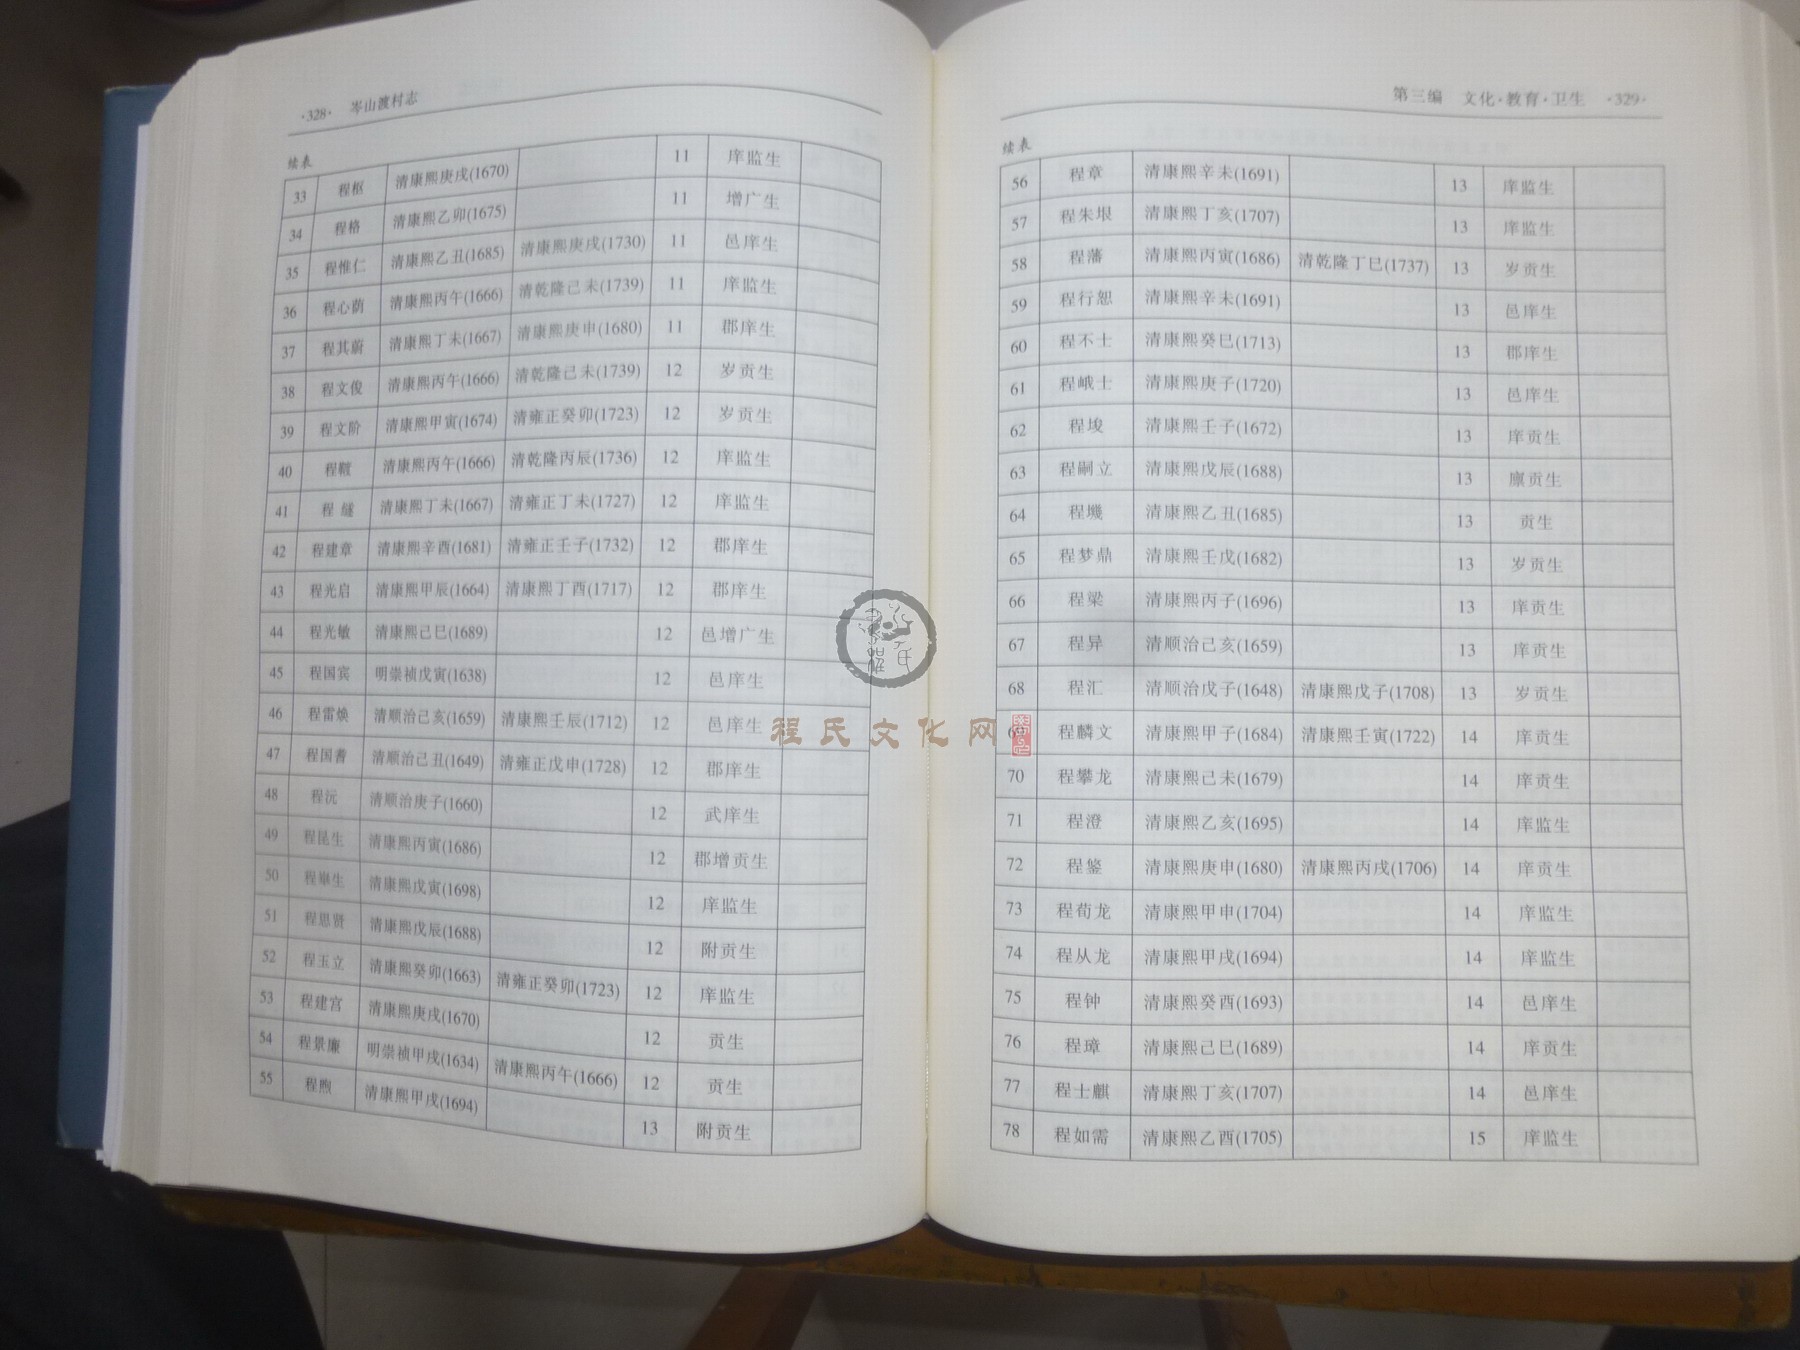 ·328· 岑山渡村志
续表
33 程枢 清康熙庚戌(1670) 11 庠监生
34 程格 清康熙乙卯(1675) 11 增广生
35 程惟仁 清康熙乙丑(1685) 清康熙庚戌(1730) 11 邑庠生
36 程心荫 清康熙丙午(1666) 清乾隆己未(1739) 11 庠监生
37 程其蔚 清康熙丁未(1667) 清康熙庚申(1680) 11 郡庠生
38 程文俊 清康熙丙午(1666) 清乾隆己未(1739) 12 岁贡生
39 程文阶 清康熙甲寅(1674) 清雍正癸卯(1723) 12 岁贡生
40 程 清康熙丙午(1666) 清乾隆丙辰(1736) 12 庠监生
41 程 清康熙丁未(1667) 清雍正丁未(1727) 12 庠监生
42 程建章 清康熙辛酉(1681) 清雍正壬子(1732) 12 郡庠生
43 程光启 清康熙甲辰(1664) 清康熙丁酉(1717) 12 郡庠生
44 程光敏 清康熙己巳(1689) 12 邑增广生
45 程国宾 明崇祯戊寅(1638) 12 邑庠生
46 程雷焕 清顺治己亥(1659) 清康熙壬辰(1712) 12 邑庠生
47 程国耆 清顺治己丑(1649) 清雍正戊申(1728) 12 郡庠生
48 程沅 清顺治庚子(1660) 12 武庠生
49 程昆生 清康熙丙寅(1686) 12 郡增贡生
50 程崋生 清康熙戊寅(1698) 12 庠监生
51 程思贤 清康熙戊辰(1688) 12 附贡生
52 程玉立 清康熙癸卯(1663) 清雍正癸卯(1723) 12 庠监生
53 程建宫 清康熙庚戌(1670) 12 贡生
54 程景廉 明崇祯甲戌(1634) 清康熙丙午(1666) 12 贡生
55 程煦 清康熙甲戌(1694) 13 附贡生
第三编 文化·教育·卫生 ·329·
续表
56 程章 清康熙辛未(1691) 13 庠监生
57 程朱垠 清康熙丁亥(1707) 13 庠监生
58 程藩 清康熙丙寅(1686) 清乾隆丁巳(1737) 13 岁贡生
59 程行恕 清康熙辛未(1691) 13 邑庠生
60 程不士 清康熙癸巳(1713) 13 郡庠生
61 程峨士 清康熙庚子(1720) 13 邑庠生
62 程埈 清康熙壬子(1672) 13 庠贡生
63 程嗣立 清康熙戊辰(1688) 13 廪贡生
64 程㙨 清康熙乙丑(1685) 13 贡生
65 程梦鼎 清康熙壬戌(1682) 13 岁贡生
66 程梁 清康熙丙子(1696) 13 庠贡生
67 程异 清顺治己亥(1659) 13 庠贡生
68 程汇 清顺治戊子(1648) 清康熙戊子(1708) 13 岁贡生
程麟文 清康熙甲子(1684) 清康熙壬寅(1722) 14 庠贡生
70 程攀龙 清康熙己未(1679) 14 庠贡生
71 程澄 清康熙乙亥(1695) 14 庠监生
72 程鉴 清康熙庚申(1680) 清康熙丙戌(1706) 14 庠贡生
73 程荀龙 清康熙甲申(1704) 14 庠监生
74 程从龙 清康熙甲戌(1694) 14 庠监生
75 程钟 清康熙癸酉(1693) 14 邑庠生
76 程璋 清康熙己巳(1689) 14 庠贡生
77 程士麒 清康熙丁亥(1707) 14 邑庠生
78 程如需 清康熙乙酉(1705) 15 庠监生
程氏文化网